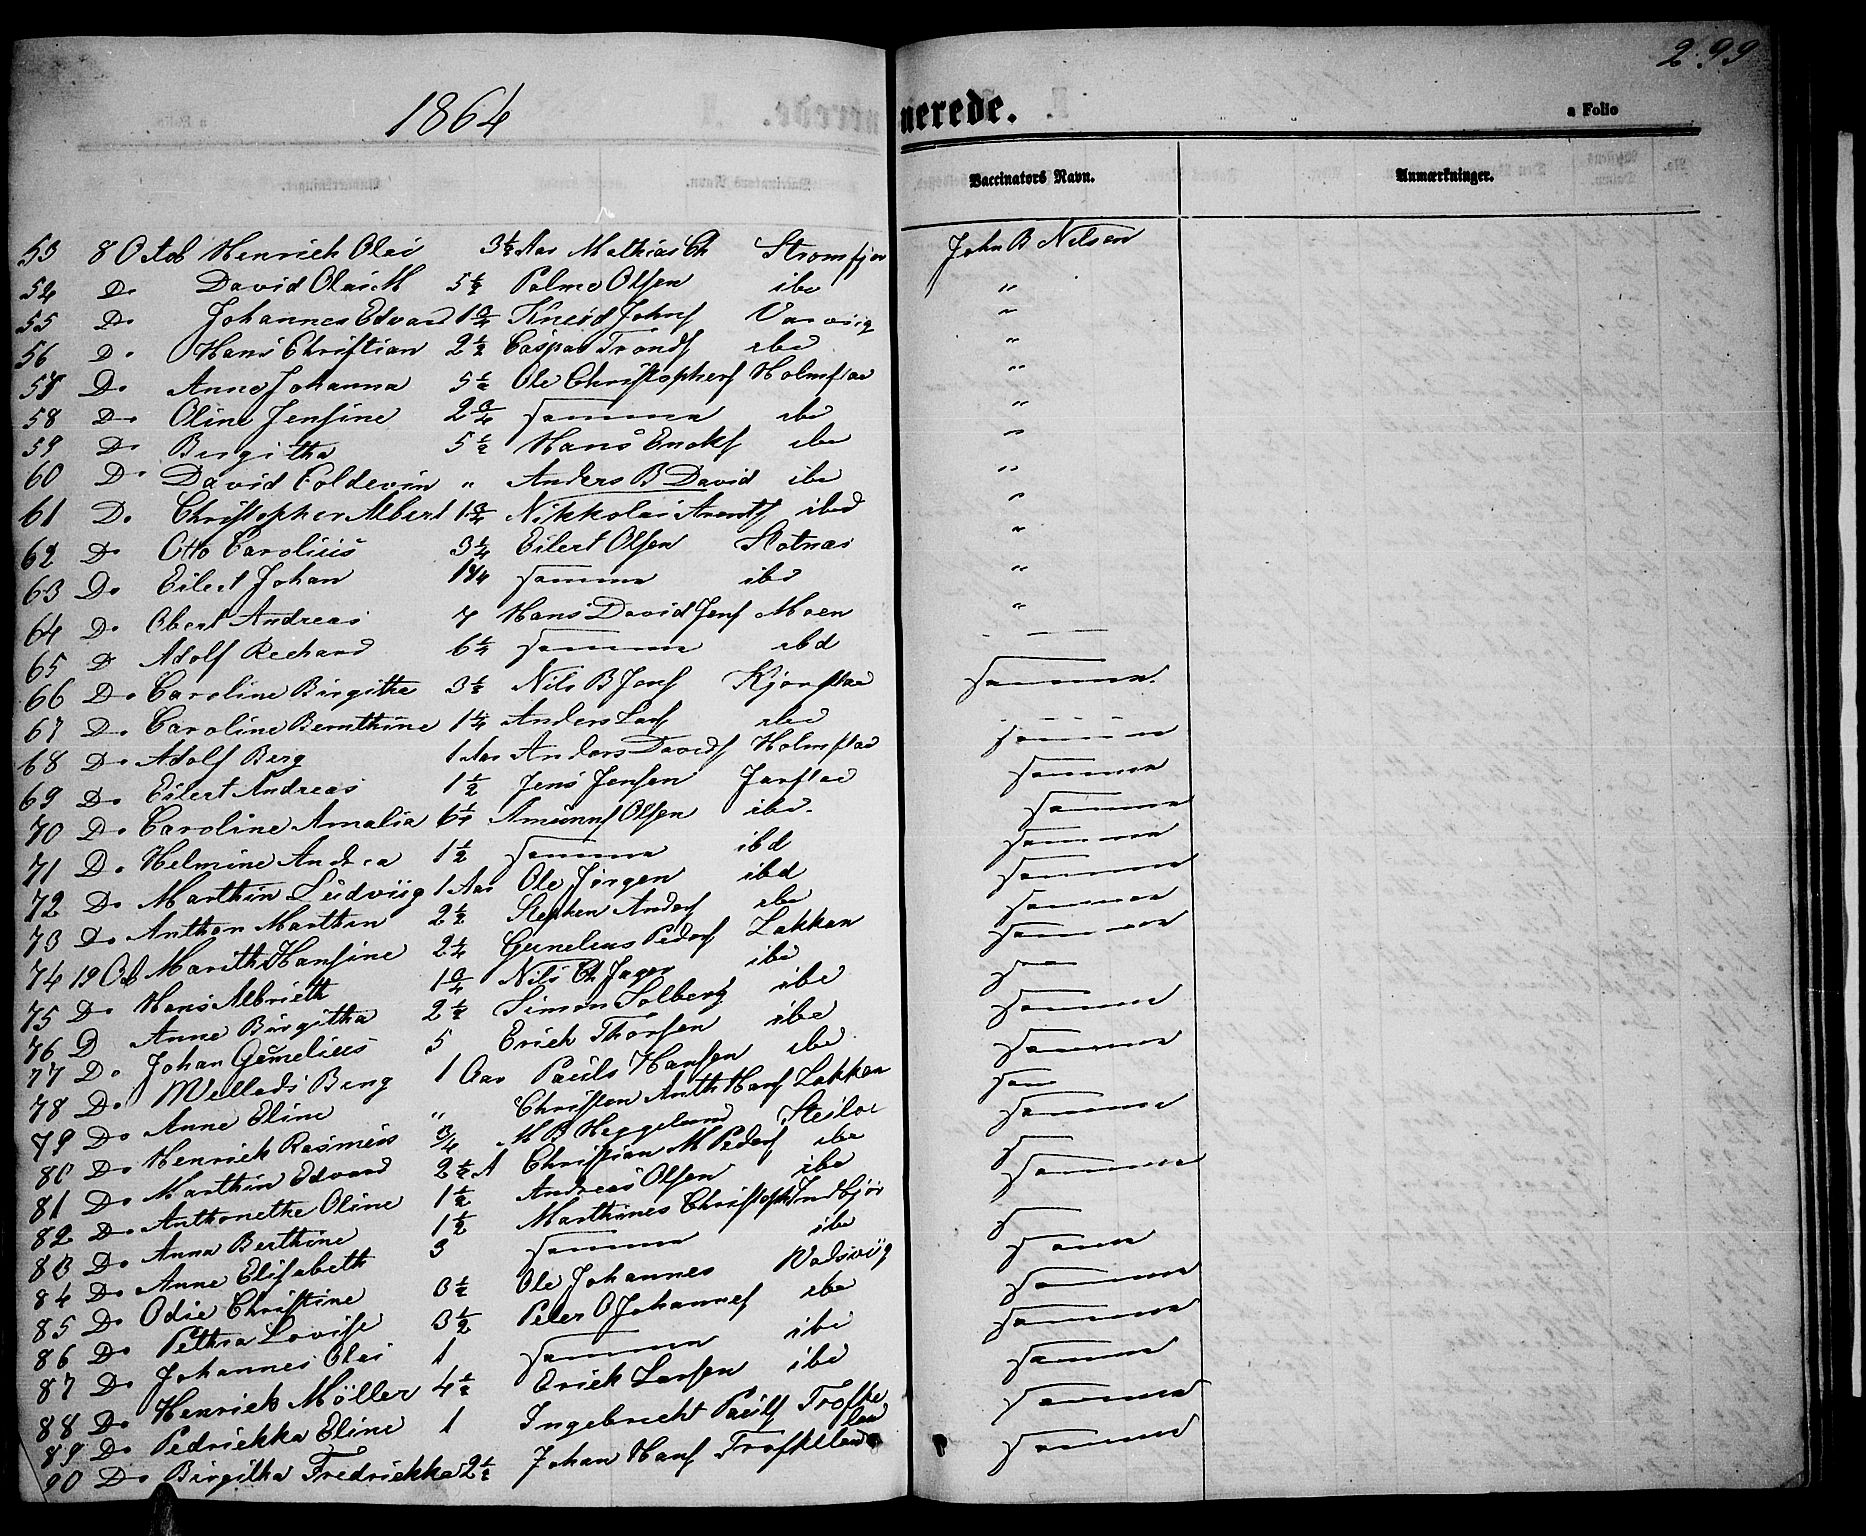 299
1864
nerede.
a Folio
Vaccinators Navn.
Anmærkninger.
53 8 Octob Henrich Olai 3½ Aar Mathias Ch Stromfjor John B Nilsen
54 Do David Olai M 5½ Palme Olsen ibd "
55 Do Johannes Edvard 1¾ Johns Varviig "
56 Do Hans Christian 2½ Caspar Tronds ibd "
58 Do Anne Johanna 5½ Ole Christophers Holmstad "
58 Do Oline Jensine 2¾ samme ibd "
59 Do Birgitha 5½ Hans Enoks ibd "
60 Do David Coldevin " Anders B David ibd "
61 Do Christopher Albert 1¾ Nikkolai Arents ibd "
62 Do Otto Carolius 3¼ Eilert Olsen Slotnæs "
63 Do Eilert Johan 1¼ samme ibd "
64 Do Obert Andreas 7 Hans David Jens Moen "
65 D Adolf Rechard 6½ samme ibd
66 Do Caroline Birgithe 3½ Nils B Jens Kjørstad samme.
67 Do Caroline Bernthine 1¼ Anders Lars ibd samme
68 Do Adolf Berg 1 Aar Anders Davids Holmstad samme
69 Do Eilert Andreas 1½ Jens Jensen Jarstad samme
70 Do Caroline Amalia 6½ Amunns Olsen ibd. samme
71 Do Helmine Andrea 1½ samme ibd samme
72 Do Marthin Ludviig 1 Aar Ole Jørgen ibd samme
73 Do Anthon Marthin 2½ Stephen Anders ibd samme
74 19 Oct Marith Hansine 2¼ Gunelius Peders Lakken
75 Do Hans Albrieth 1¾ Nils Ch Jager ibd samme
76 D Anne Birgitha 2½ Simon Solberg ibd samme
77 Do Johan Gunelius 5 Erich Thorsen ibd
78 Do Mellads Berg 1 Aar Pauls Hansen ibd samme
79 Do Anne Eline " Christen Anth Hans Lakken
80 Do Henrich Rasmus ¾ M B Heggelund Steiloe samme
81 Do Marthin Edvard 2½ A Christian M Peders ibd
82 Do Anthonethe Oline 1½ Andreas Olsen ibd samme
83 Do Anna Berthine 1½ Marthines Christoph Indbjør samme
84 Do Anne Elisabeth 3 samme ibd samme
85 Do Odie Christine 3½ Ole Johannes Vadsviig samme
86 Do Pethra Lovise 3½ Peter O Johannes ibd samme
87 Do Johannes Olai 1 samme ibd samme
88 Do Henrich Møller 4½ Erick Larsen ibd
89 Do Pedriekka Eline 1 Ingebrecht Pauls Trofte
lan
90 Do Birgitha Fredriekke 2½ Johan Hans